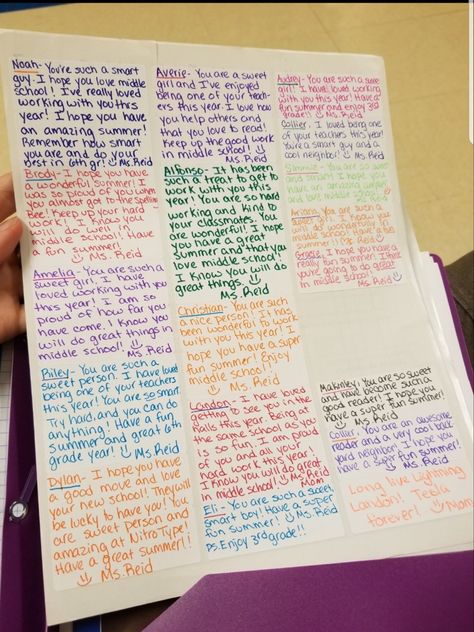 Noah- You're such a smart
guy. I hope you love middle
school! I've really loved
working with you this
year! I hope you have
an amazing summer!
Remember how smart
you are and do your
best in 6th gr! Ms. Reid
Brody- I hope you have
a wonderful summer! I
was so proud of you when
you almost got to the Spelling
Bee! Keep up your hard
work! I know you
will do well in
middle school! Have
a fun summer!
Ms. Reid
Amelia- You are such a
sweet girl. I have
loved working with you
this year! I am so
proud of how far you
have come. I know you
will do great things in
middle school! Ms. Reid
Riley- You are such a
sweet person. I have loved
being one of your teachers
this year! You are so smart
Try hard, and you can do
anything! Have a fun
summer and great 6th
grade year! Ms. Reid
Dylan- I hope you have
a good move and love
your new school! They will
be lucky to have you! You
are sweet person and
amazing at NitroType!
Have a great summer!!
Ms. Reid
Averie- You are a sweet
girl and I've enjoyed
being one of your teach-
ers this year. I love how
you help others and
that you love to read!
Keep up the good work
in middle school!
Ms. Reid
Alfonso- It has been
such a treat to get to
work with you this
year! You are so hard
working and kind to
your classmates. You
are wonderful! I hope
you have a great
summer and that you
love middle school!
I know you will do
great things!
Ms. Reid
Christian- You are such
a nice person! It has
been wonderful to work
with you this year! I
hope you have a super
fun summer! Enjoy
middle school!!
Ms. Reid
Landon- I have loved
getting to see you in the
halls this year. Being at
the same school as you
is so fun. I am proud
of you and all your
hard work this year!
I know you will do great
in middle school!
Ms. Reid
Mom
Eli- You are such a sweet,
smart boy! Have a super
fun summer! Ms. Reid
Ps. Enjoy 3rd grade!!
Audrey- You are such a sweet
girl! I have loved working
with you this year! Have a
fun summer and enjoy 3rd
grade! Ms. Reid
Collier- I loved being one
of your teachers this year!
You're a smart guy and a
cool neighbor! Ms. Reid
You are so sweet
and smart! I hope you
have an amazing summer
You are
I know you
will do wonderful in
middle school! Have a
summer!! Ms. Reid
Gracie- I hope you have a
really fun summer. I think
you're going to do great
in middle school! Ms. Reid
Makinley- You are so sweet
and have become such a
good reader! I hope you
have a super fun summer!
Ms. Reid
Collin- You are an awesome
reader and a very cool back
yard neighbor! I hope you
have a super fun summer!
Ms. Reid
Long live Lightning
Landon! Tesla
forever! Mom